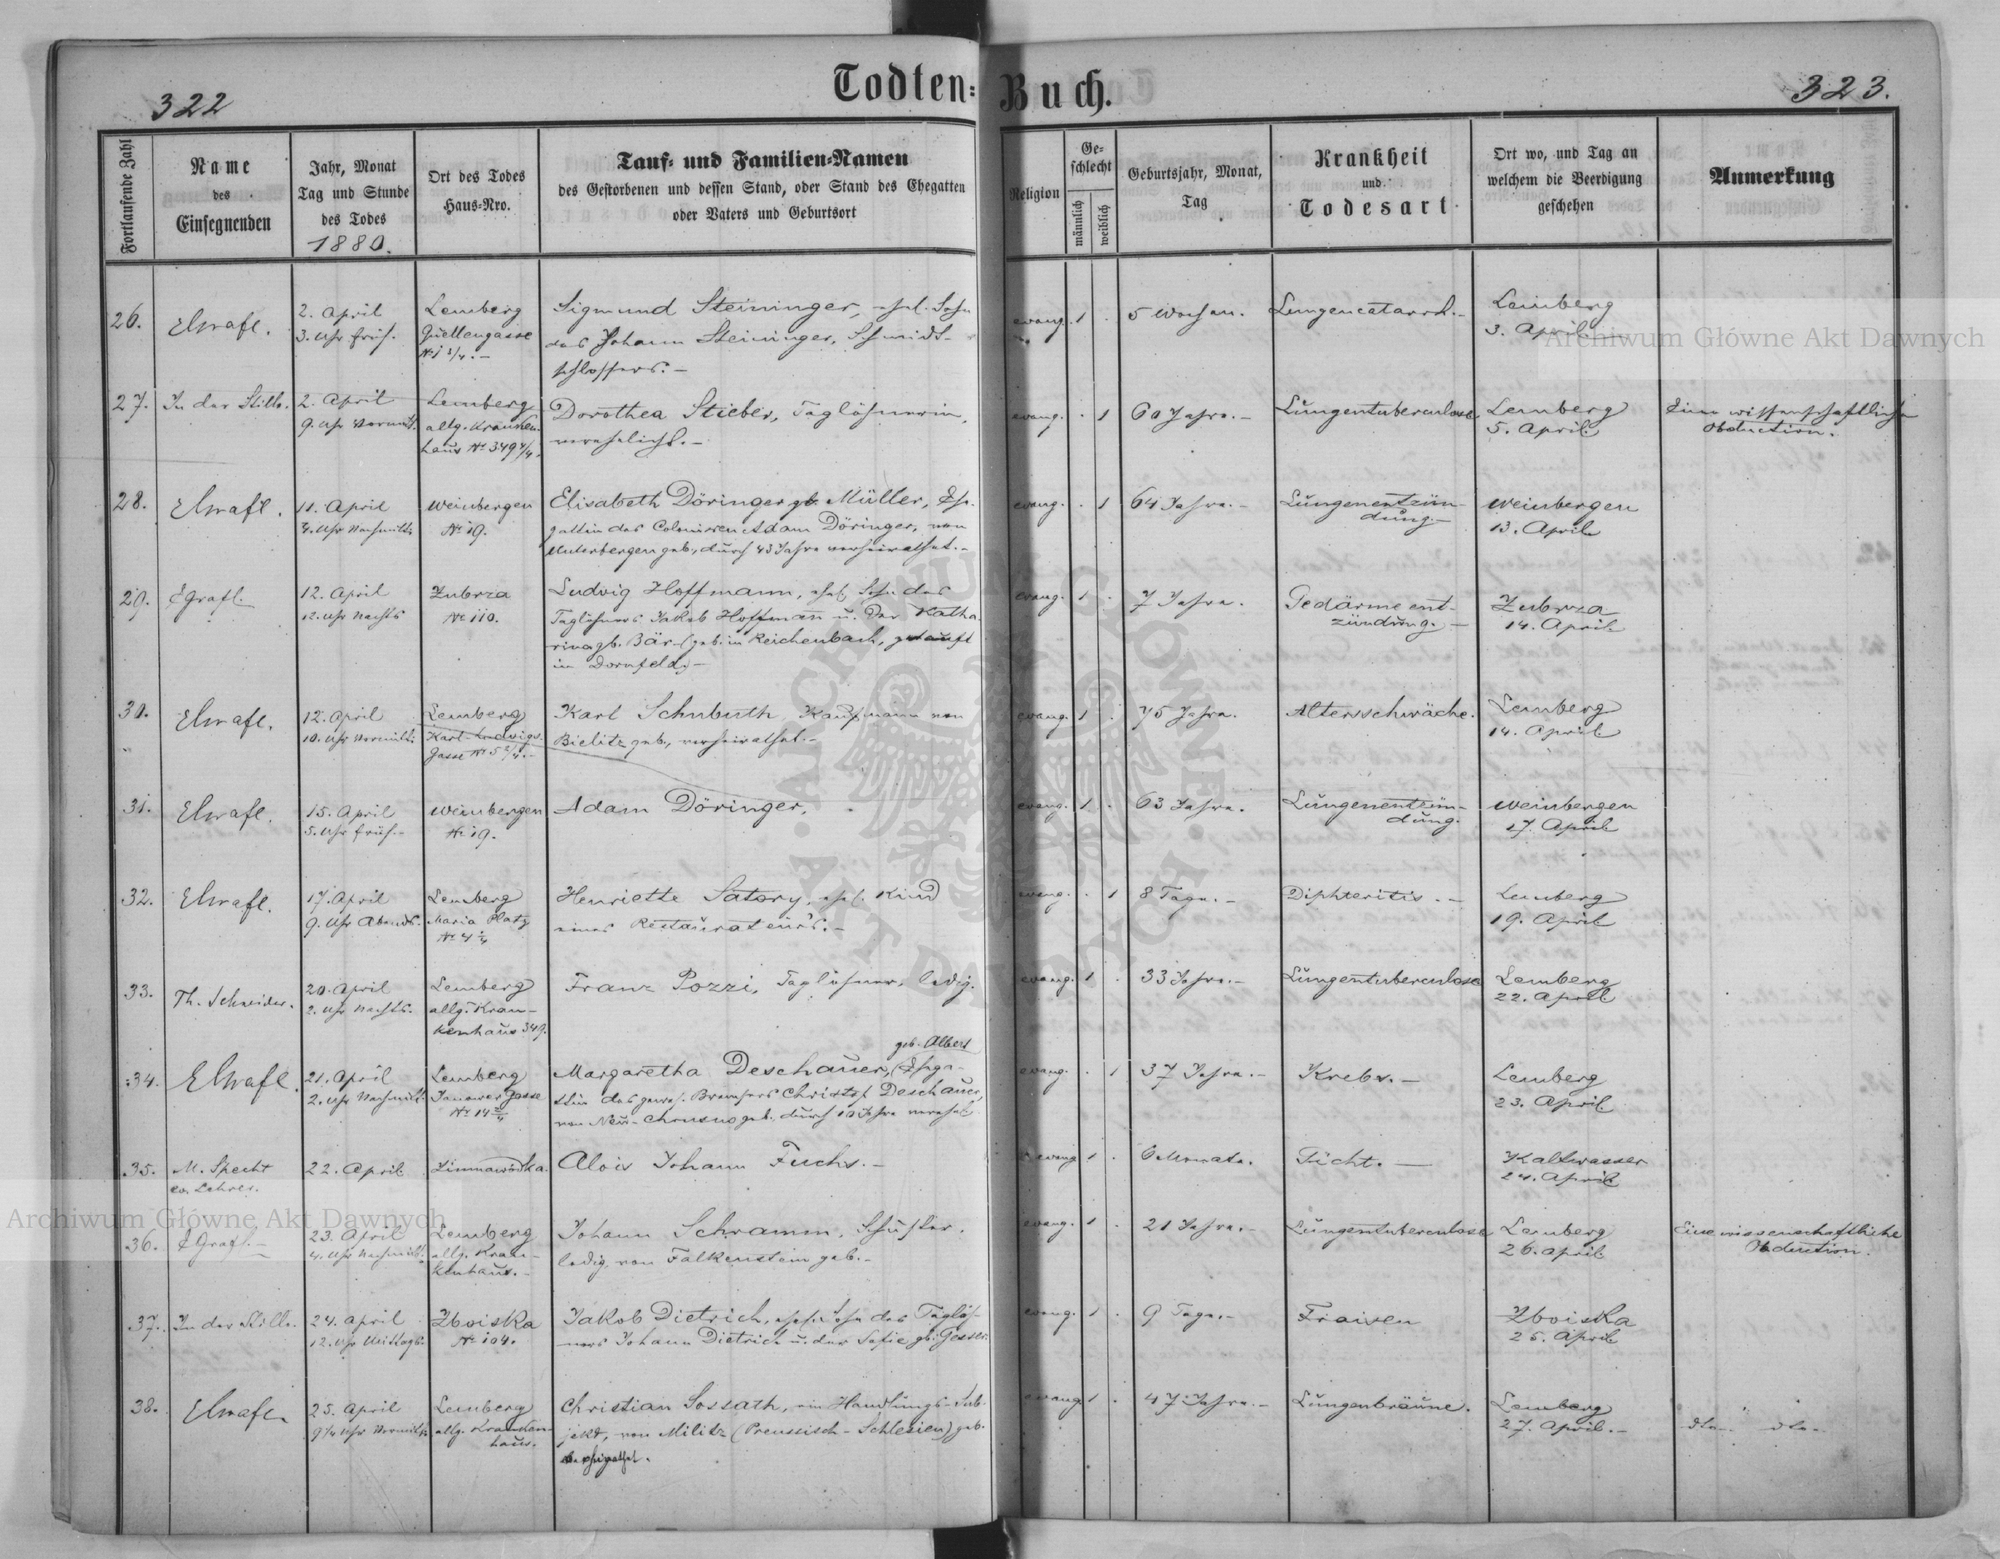 Todten-Buch.
322
323.
Fortlaufende Zahl
Name
des
Einsegnenden
Jahr, Monat
Tag und Stunde
des Todes
1880.
Ort des Todes
Haus-Nro.
Tauf- und Familien-Namen
des Gestorbenen und dessen Stand, oder Stand des Ehegatten
oder Vaters und Geburtsort
Religion
Ge-
schlecht
männlich
weiblich
Geburtsjahr, Monat,
Tag
Krankheit
und
Todesart
Ort wo, und Tag an
welchem die Beerdigung
geschehen
Anmerkung
26.
2. April
3. Uhr früh.
Lemberg
Quellengasse
Sigmund Steininger, ehel. Sohn
des Johann Steininger, Schmidt-
schlossers.-
evang. 1 .
5 Wochen.
Lungencatarrh.-
Lemberg
3. April
27.
In der Stille.
2. April
9. Uhr Vormitt.
Lemberg
allg. Kranken-
haus No 349 4/4.
Dorothea Stieber, Taglöhnerin,
verehelicht.-
evang. . 1
60 Jahre.-
Lungentuberculose
Lemberg
5. April
Eine wissenschaftliche
Obduction.
28.
11. April
4. Uhr Nachmitt.
Weinbergen
No 19.
Elisabeth Döringer gb. Müller, Ehe-
gattin des Colonisten Adam Döringer, von
Unterbergen geb., durch 43 Jahre verheirathet.-
evang. . 1
64 Jahre.-
Lungenentzün-
dung.-
Weinbergen
13. April
29.
EGrafl.
12. April
12. Uhr Nachts
Zubrza
No 110.
Ludwig Hoffmann, ehel. Sohn des
Taglöhners Jakob Hoffmann u. der Katha-
rina gb. Bär (geb. in Reichenbach, getauft
in Dornfeld).-
evang. 1 .
7 Jahre.
Gedärme ent-
zündung.-
Zubrza
14. April
30.
12. April
10. Uhr Vormitt.
Lemberg
Karl Ludwigs-
Gasse No 5 2/4.-
Karl Schubuth, Kaufmann von
Bielitz geb., verheirathet.-
evang. 1 .
75 Jahre.
Altersschwäche.
Lemberg
14. April
31.
15. April
5. Uhr früh.-
Weinbergen
No 19.
Adam Döringer.
evang. 1 .
63 Jahre.
Lungenentzün-
dung.
Weinbergen
17. April
32.
17. April
9. Uhr Abends.
Lemberg
Maria Platz
Henriette Satory, ehel. Kind
eines Restaurateurs.-
evang. . 1
8 Tage.-
Diphteritis.-
Lemberg
19. April
33.
Th. Schneider.
20. April
2. Uhr Nachts.
Lemberg
allg. Kran-
kenhaus 349.
Franz Pozzi, Taglöhner, ledig.
evang. 1 .
33 Jahre.-
Lungentuberculose
Lemberg
22. April
34.
21. April
2. Uhr Nachmitt.
Lemberg
Janower Gasse
No 14 2/4
geb. Albert
Margaretha Deschauer, Ehega-
ttin des gewes. Brauers Christof Deschauer,
von Neu-Chrusno geb., durch 10 Jahre verehel.
evang. . 1
37 Jahre.-
Krebs.-
Lemberg
23. April
35.
M. Specht
ev. Lehrer.
22. April
Zimnawodka.
Alois Johann Fuchs.-
evang. 1 .
6 Monate.
Gicht.-
Kaltwasser
24. April
36.
EGrafl.-
23. April
4. Uhr Nachmitt.
Lemberg
allg. Kran-
kenhaus.-
Johann Schramm, Schüler,
ledig, von Falkenstein geb.-
evang. 1 .
21 Jahre.-
Lungentuberculose
Lemberg
26. April
Eine wissenschaftliche
Obduction.
37.
In der Stille.
24. April
12. Uhr Mittags.
Zboiska
No 104.
Jakob Dietrich, ehel. Sohn des Taglöh-
ners Johann Dietrich u. der Sofie gb. Gesser.
evang. 1 .
9 Tage.-
Fraisen
Zboiska
25. April
38.
25. April
9 1/4 Uhr Vormitt.
Lemberg
allg. Kranken-
haus.
Christian Sossath, ein Handlungs-Sub-
jekt, von Militz (Preussisch-Schlesien) geb.
verheirathet.
evang. 1 .
47 Jahre.-
Lungenbräune.
Lemberg
27. April.-
dto- dto-
Archiwum Główne Akt Dawnych
Archiwum Główne Akt Dawnych
ARCHIWUM GŁÓWNE • AKT DAWNYCH •